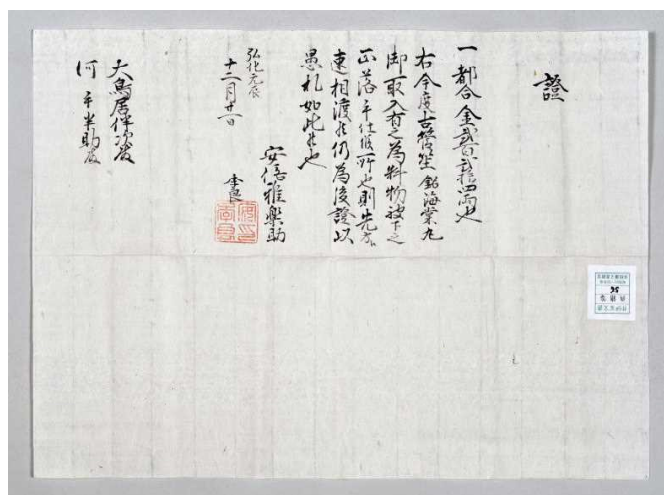 證
一都合金弐百弐拾四両也
右今度古管笙 銘海棠丸
御取入有之為料物被下之
正落手仕候所也則先方
速相渡候仍為後證以
愚札如此候也
安倍雅楽助
弘化元辰
十二月廿一日
季良
大鳥居伊織殿
河 半助殿